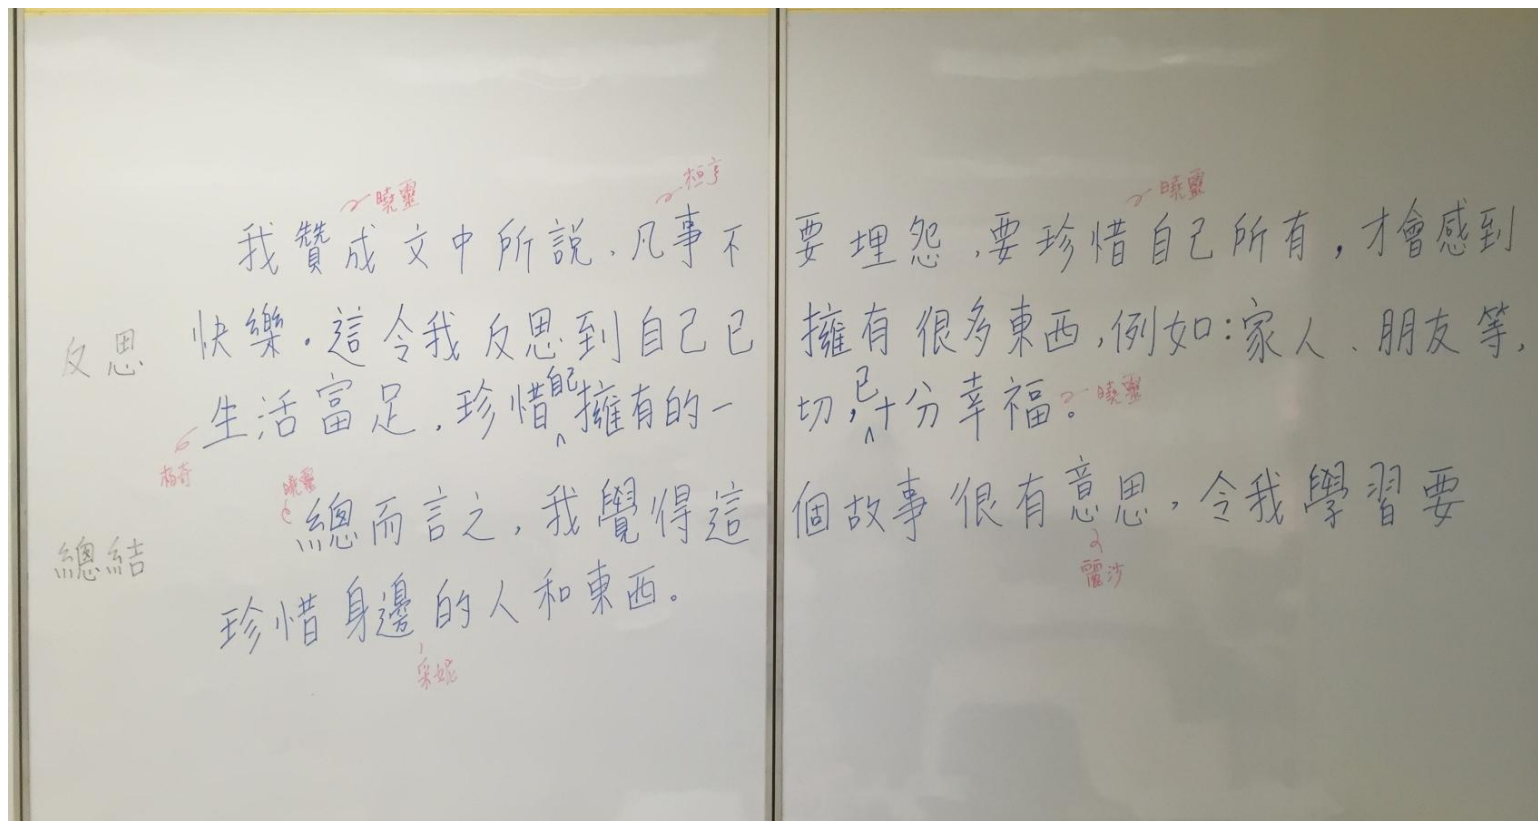 曉靈 桓宇 曉靈
我贊成文中所説，凡事不要埋怨，要珍惜自己所有，才會感到
反思 快樂。這令我反思到自己已擁有很多東西，例如：家人、朋友等，
生活富足，珍惜自己擁有的一切，已十分幸福。 曉靈
曉靈
總而言之，我覺得這個故事很有意思，令我學習要
總結
麗沙
珍惜身邊的人和東西。
采妮